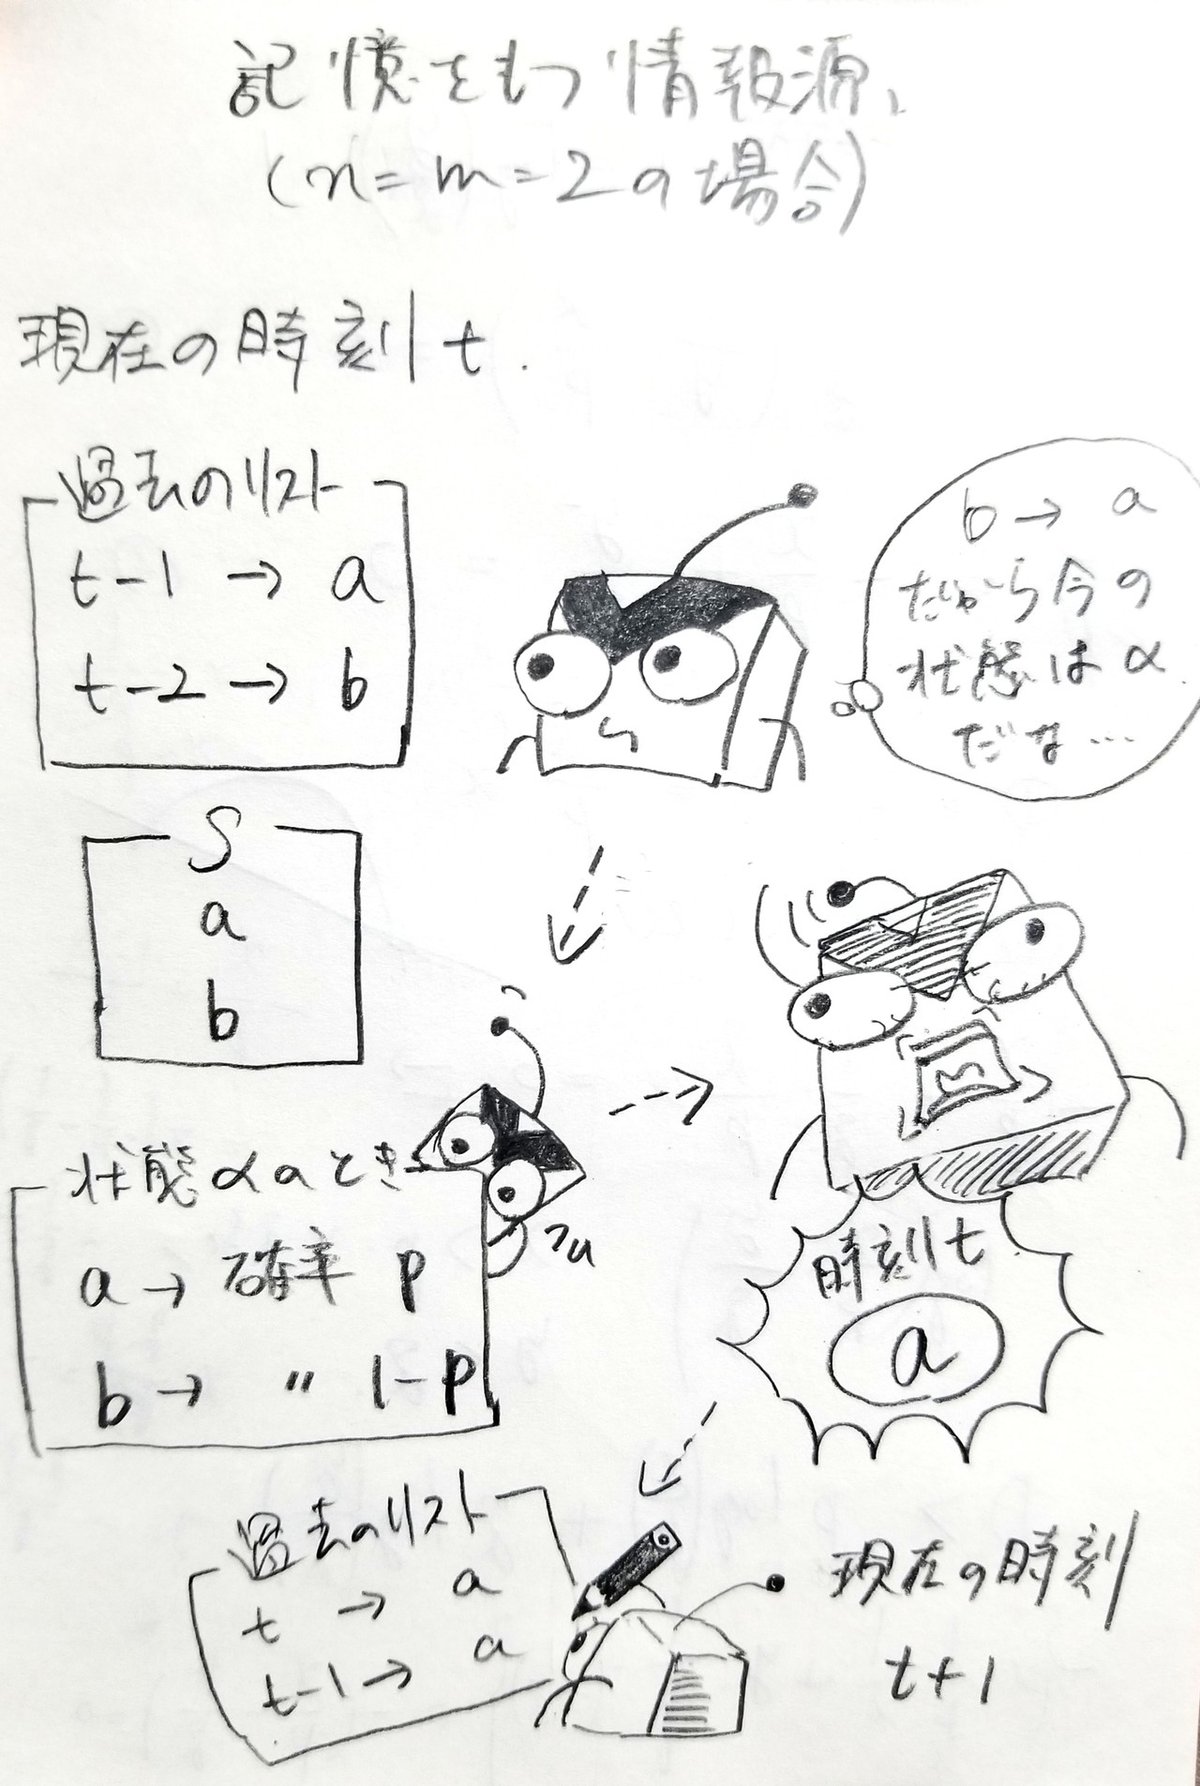 記憶をもつ情報源、
(n=m=2の場合)
現在の時刻 t.
過去のリスト
t-1 → a
t-2 → b
b → a
だから今の
状態はα
だな…
S
a
b
状態αのとき
a → 確率 p
b → 〃 1-p
時刻 t
a
過去のリスト
t → a
t-1 → a
現在の時刻
t+1